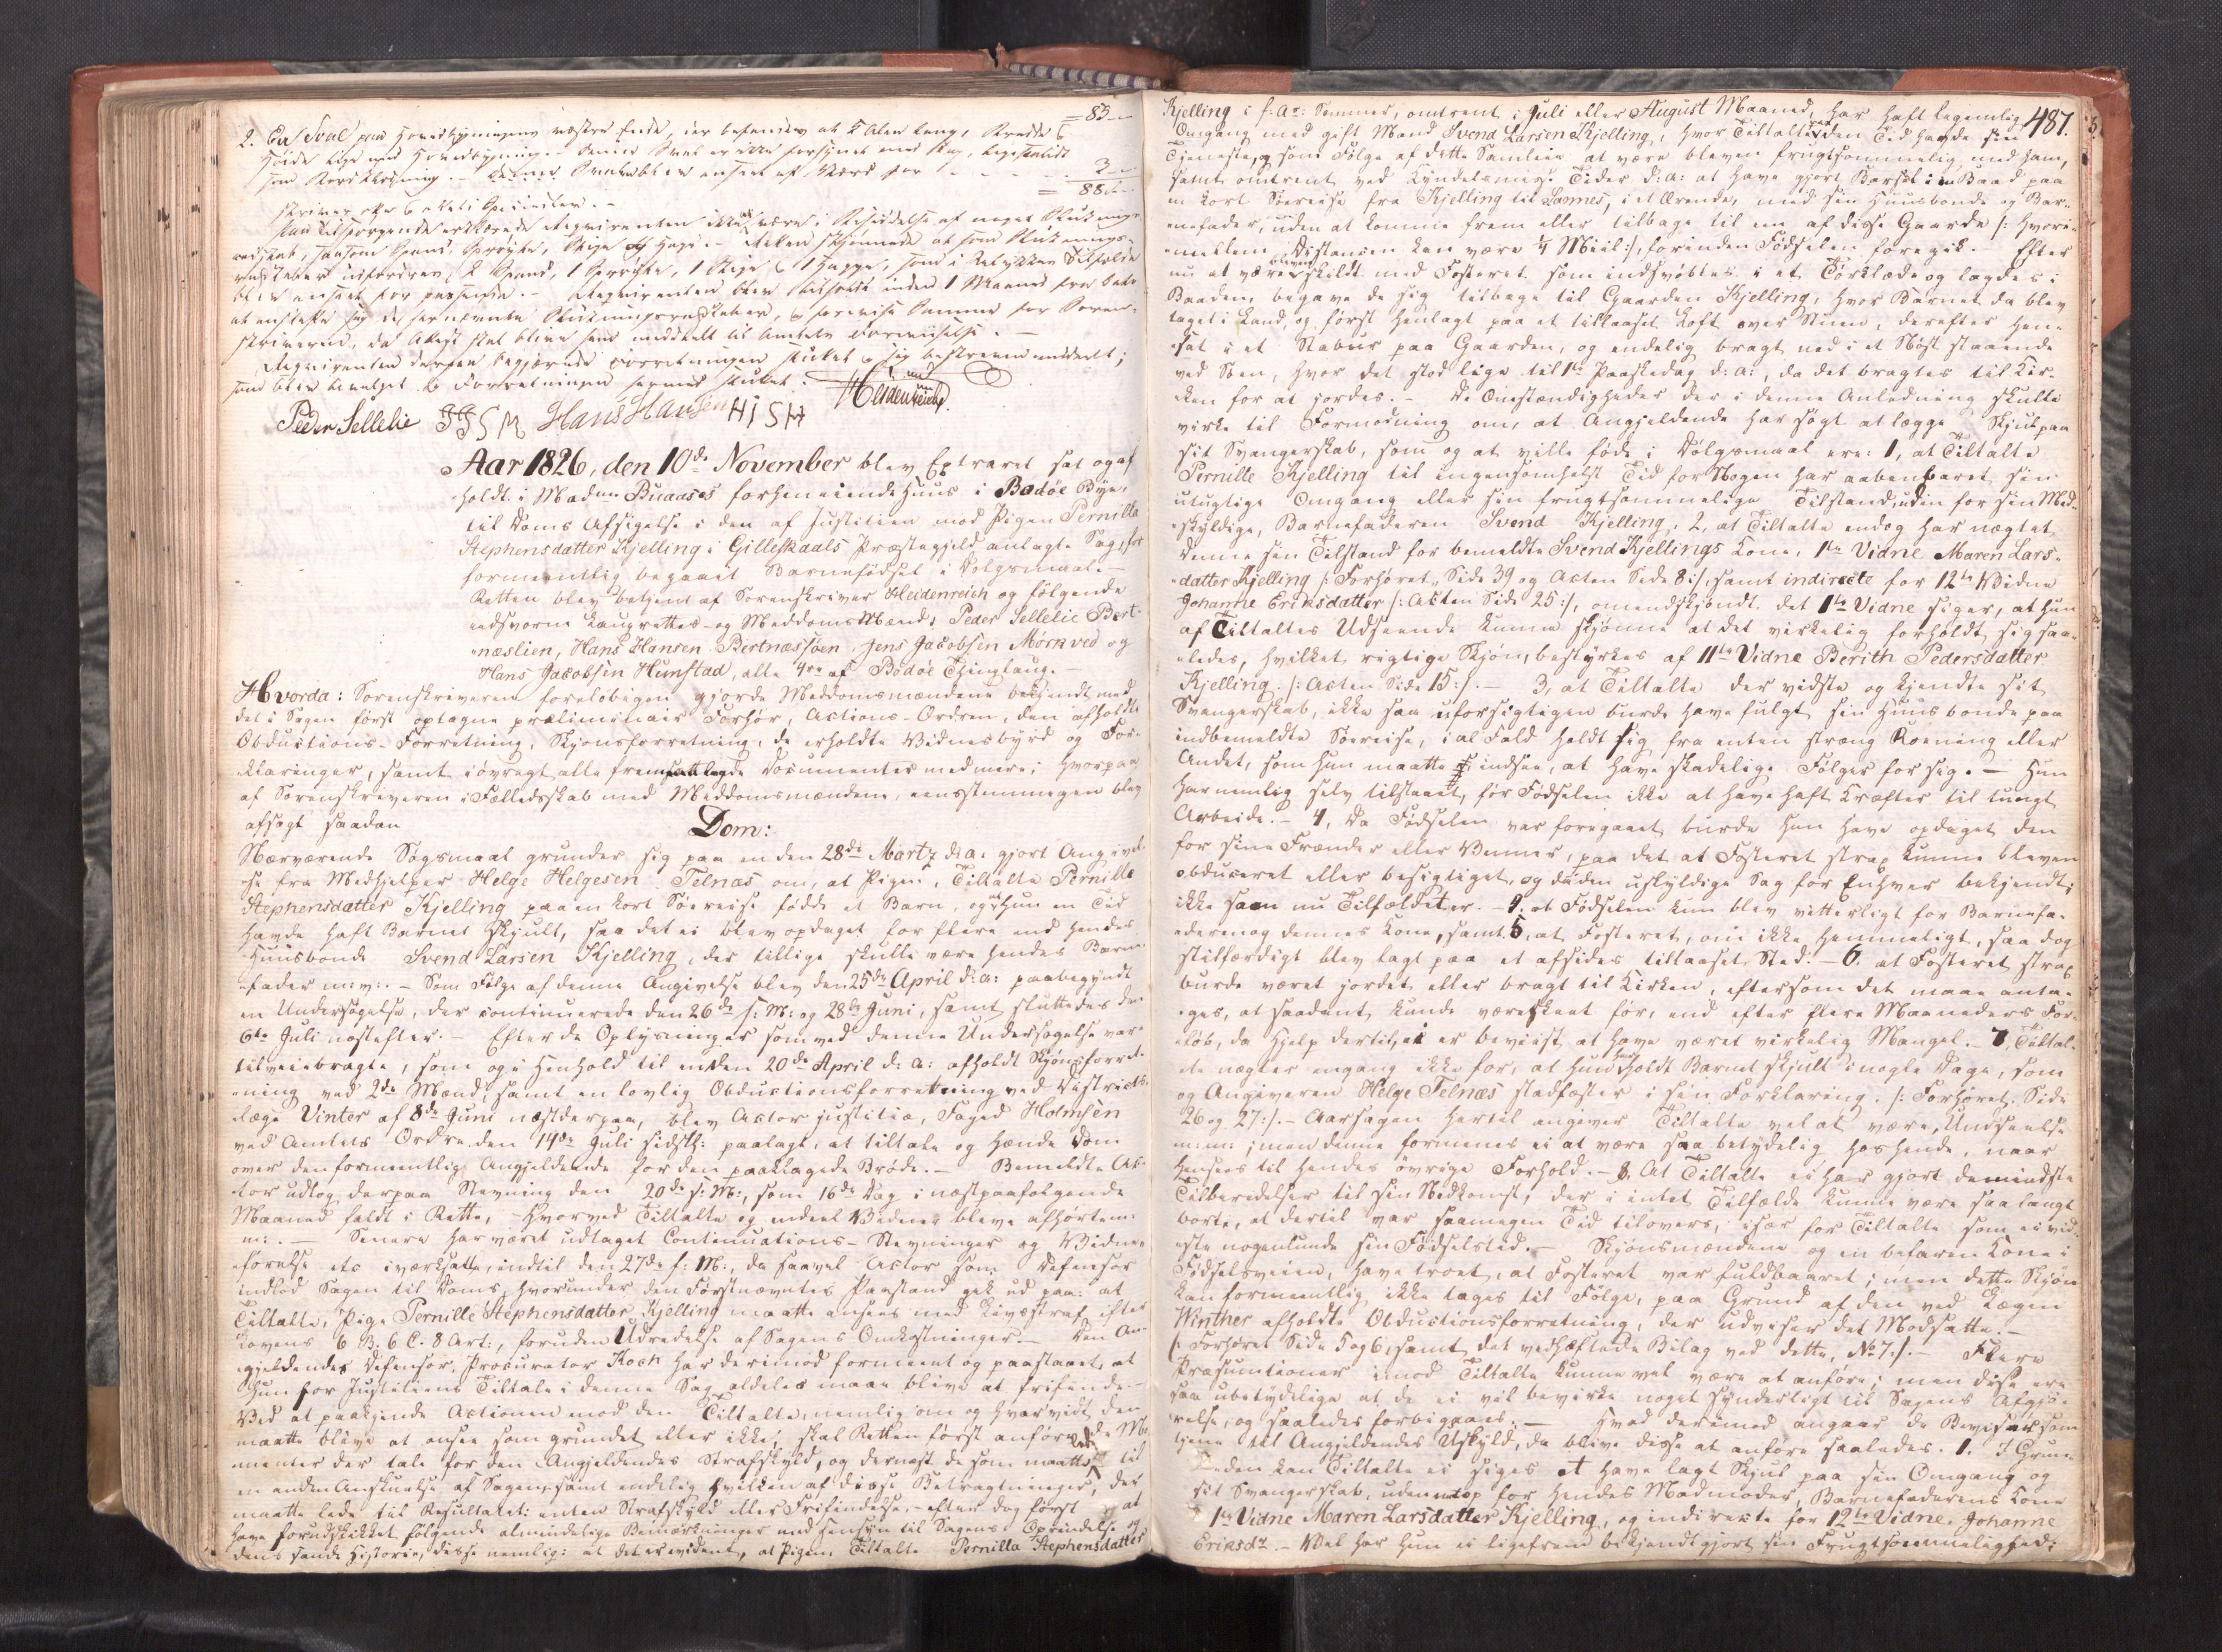 = 83 –
2. En Sval paa Hovedbygningens vestre Ende, der befandtes at 5 Alen lang, Bredde &
Høide lige med Hovedbygningen. Denne Sval er ikke forsynet med Tag, ligesaalidt
som Bordklædning. – Denne Sval blev anseet af Værd for - - - - 2 –
= 85 –
skriver efter 6 Speciesdaler. –
Paa Tilspørgende erklærede Requirenten ikke at være i Besiddelse af noget Slukningsredskab,
saasom Spand, Sprøyte, Stige og Hage. –
redskaber udfordres 2 Spand, 1 Sprøite, 1 Stige & 1 Hage, som i Tilfælde
blev anseet for passende. – Requirenten blev tilholdt inden 1 Maaned fra Dato
at anskaffe sig de fornævnte Slukningsredskaber, & forevise samme for Sorenskriveren,
da Attest skal blive ham meddeelt til Amtets Foreviiselse. –
Requirenten derpaa begjærede Forretningen sluttet & sig beskreven meddeelt;
som blev bevilget & Forretningen hermed sluttet.
Heidenreich
Peder Sellelie JJSM Hans Hansen HISH
Aar 1826, den 10de November blev Extraret sat og afholdt
i Madme Buaases forhenværende Huus i Bodøe Bye,
til Doms Afsigelse i den af Justitien mod Pigen Pernilla
Stephensdatter Kjelling i Gilleskaals Præstegjeld anlagte Sag, for
formeentlig begaaet Barnefødsel i Dølgsmaal. –
Retten blev betjent af Sorenskriver Heidenreich og følgende
edsvorne Laugrettes- og Meddomsmænd: Peder Sellelie Bert-
næslien, Hans Hansen Bertnæssøen, Jens Jacobsen Mørkved og
Hans Jacobsen Hunstad, alle 4re af Bodøe Thinglaug. –
Hvorda: Sorenskriveren foreløbigen gjorde Meddomsmændene bekjendt med
det i Sagen først optagne præliminair Forhør, Actions-Ordren, den afholdte
Obductions-Forretning, Skjønsforretning, de erholdte Vidnesbyrd og For-
klaringer, samt iøvrigt alle fremlagde Documenter med mere; hvorpaa
af Sorenskriveren i Fælledsskab med Meddomsmændene, eensstemmigen blev
afsagt saadan
Dom:
Nærværende Søgsmaal grunder sig paa en den 28de Martz d: a: gjort Angivel-
se fra Medhjelper Helge Helgesen Telnæs om, at Pigen, Tiltalte Pernille
Stephensdatter Kjelling paa en kort Søereise fødde et Barn, og at hun en Tid
havde haft Barnet skjult, saa det ei blev opdaget for flere end hendes
Huusbonde Svend Larsen Kjelling, der tillige skulle være hendes Barne-
fader m: v:. – Som Følge af denne Angivelse blev den 25de April d: a: paabegyndt
en Undersøgelse, der continuerede den 26de s: M: og 28de Juni, samt sluttedes den
6te Juli næstefter. – Efter de Oplysninger som ved denne Undersøgelse vare
tilveiebragte, som og i Henhold til en den 20de April d: a: afholdt Skjønsforret-
ning ved 2de Mænd, samt en lovlig Obductionsforretning ved Districts-
læge Vinter af 8de Juni næstderpaa, blev Actor justitiæ, Foged Holmsen
ved Amtets Ordre den 14de Juli sidstl: paalagt, at tiltale og hænde Dom
over den formeentlig Angjeldende for den paaklagede Brøde. – Bemeldte Ac-
tor udtog derpaa Stevning den 20de s: M:, som 16de Dag i næstpaafølgende
Maaned faldt i Rette, – hvorved Tiltalte og endeel Vidner bleve afhørte m:
m:. – Senere har været udtaget Continuations-Stevninger og Vidne-
førelse etc iværksatte, indtil den 27de f: M:, da saavel Actor som Defensor
indlod Sagen til Doms, hvorunder den Førstnævntes Paastand gik ud paa: at
Tiltalte, Pige Pernille Stephensdatter Kjelling maatte ansees med Livsstraf efter
Lovens 6 B: 6 C: 8 Art:, foruden Udredelse af Sagens Omkostninger. – Den An-
gjeldendes Defensor, Procurator Koch har derimod formeent og paastaaet, at
hun for Justitiens Tiltale i denne Sag aldeles maae blive at frifinde. –
Ved at paakjende Actionen mod den Tiltalte, nemlig om og hvorvidt den
maatte blive at ansee som grundet eller ikke, skal Retten først anføre de Mo-
menter der tale for den Angjeldendes Strafskyld, og dernæst de som maatte lede til
en anden Anskuelse af Sagen, samt endelig hvilken af disse Betragtninger, der
maatte lede til Resultatet: enten Strafskyld eller Frifindelse, – efter dog først at
have forudskikket følgende almindelige Bemærkninger med Hensyn til Sagens Oprindelse og
dens sande Historie, disse nemlig: at det er evident, at Pigen, Tiltalte Pernilla Stephensdatter
487.
Kjelling i f: Ars: Sommer, omtrent i Juli eller August Maaned, har haft legemlig
Omgang med gift Mand Svend Larsen Kjelling, hvor Tiltalte ved den Tid havde sin
Tjeneste, og som Følge af dette Samleie at være bleven frugtsommelig med ham,
samt omtrent ved Kyndelsmisse Tider d: a: at have gjort Barsel i en Baad paa
en kort Søereise fra Kjelling til Lannes, i et Ærende, med sin Huusbonde og Bar-
nefader, uden at komme frem eller tilbage til en af disse Gaarde /: hvori-
mellem Distancen kan være ¼ Miil :/, forinden Fødselen foregik. – Efter
nu at være bleven skildt med Fosteret som indsvøbtes i et Tørklæde og lagdes i
Baaden, begave de sig tilbage til Gaarden Kjelling, hvor Barnet da blev
taget i Land, og først henlagt paa et tillaaset Loft over Stuen, derefter hen-
sat i et Stabur paa Gaarden, og endelig bragt ned i et Nøst staaende
ved Søen, hvor det stod lige til 1te Paaskedag d: a:, da det bragtes til Kir-
ken for at jordes. – De Omstændigheder der i denne Anledning skulle
virke til Formodning om, at Angjeldende har søgt at lægge Skjul paa
sit Svangerskab, som og at ville føde i Dølgsmaal ere: 1, at Tiltalte
Pernille Kjelling til ingensomhelst Tid for Nogen har aabenbaret sin
utugtige Omgang eller sin frugtsommelige Tilstand, uden for sin Med-
skyldige, Barnefaderen Svend Kjelling, 2, at Tiltalte endog har nægtet
denne sin Tilstand for bemeldte Svend Kjellings Kone, 1te Vidne Maren Lars-
datter Kjelling /: Forhøret, Side 39 og Acten Side 8 :/, samt indirecte for 12te Vidne
Johanne Eriksdatter /: Acten Side 25 :/, omendskjøndt det 1te Vidne siger, at hun
af Tiltaltes Udseende kunne skjønne at det virkelig forholdt sig saa-
ledes, hvilket rigtige Skjøn, bestyrkes af 11te Vidne Berith Pedersdatter
Kjelling. /: Acten Side 15 :/. – 3, at Tiltalte der vidste og kjendte sit
Svangerskab, ikke saa uforsigtigen burde have fulgt sin Huusbonde paa
indbemeldte Søereise, i al Fald holdt sig fra enten streng Roening eller
Andet, som hun maatte indsee, at have skadelige Følger for sig. – Hun
har nemlig selv tilstaaet, før Fødselen ikke at have haft Kræfter til tungt
Arbeide. – 4, Da Fødselen var foregaaet, burde hun have opdaget den
for sine Frænder eller Venner, paa det at Fosteret strax kunne bleven
obduceret eller besigtiget, og da den uskyldige Sag for Enhver bekjendt;
ikke saa nu Tilfældet er. – at Fødselen kun blev vitterligt for Barnefa-
deren og dennes Kone, samt 5, at Fosteret, om ikke hemmeligt, saa dog
stilfærdigt blev lagt paa et afsides tillaaset Sted. – 6. at Fosteret strax
burde været jordet eller bragt til Kirken, eftersom det maae anta-
ges, at saadant kunde være skeet før, end efter flere Maaneders For-
løb, da Hjelp dertil, ei er beviist, at have været virkelig Mangel. – 7, Tiltal-
te nægter engang ikke for, at hun har holdt Barnet skjult i nogle Dage, som
og Angiveren Helge Telnæs stadfæster i sin Forklaring. /: Forhøret Side
26 og 27 :/. – Aarsagen hertil angiver Tiltalte vel at være, Undseelse
m: m: ; men denne formenes ei at være saa betydelig hos hende, naar
hensees til hendes øvrige Forhold. – 8, At Tiltalte ei har gjort de mindste
Tilberedelser til sin Nedkomst, der i intet Tilfælde kunne være saa langt
borte, at dertil var saamegen Tid tilovers, især for Tiltalte som ei vid-
ste nogenlunde sin Fødselstid. – Skjønsmændene og en befaren Kone i
Fødselsveien, have troet, at Fosteret var fuldbaaret; men dette Skjøn
kan formeentlig ikke tages til Følge, paa Grund af den ved Lægen
Winther afholdte Obductionsforretning, der udviser det Modsatte. –
/: Forhøret Side 5 og 6, samt det vedhæftede Bilag ved dette, No 7 :/. – Flere
Præsumtioner imod Tiltalte kunne vel være at anføre; men disse ere
saa ubetydelige at de ei vil bevirke noget synderligt til Sagens Afgjø-
relse, og saaledes forbigaaes. – Hvad derimod angaaer de Beviser som
tjene til Angjeldendes Uskyld, da blive disse at anføre saaledes. 1. I Grun-
den kan Tiltalte ei siges at have lagt Skjul paa sin Omgang og
sit Svangerskab, uden for hendes Madmoder, Barnefaderens Kone
1te Vidne Maren Larsdatter Kjelling, og indirecte for 12te Vidne, Johanne
Eriksdr. – Vel har hun ei ligefrem bekjendtgjort sin Frugtsommelighed;